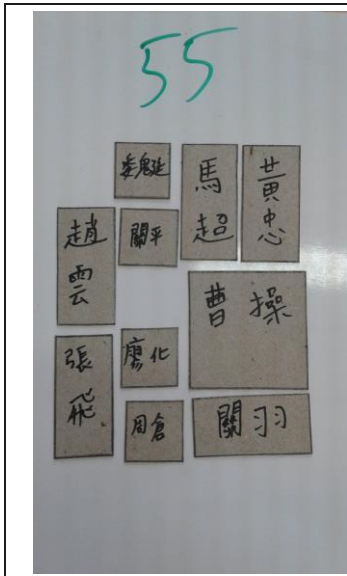 55
魏延
馬超
黃忠
趙雲
關平
曹操
張飛
廖化
周倉
關羽